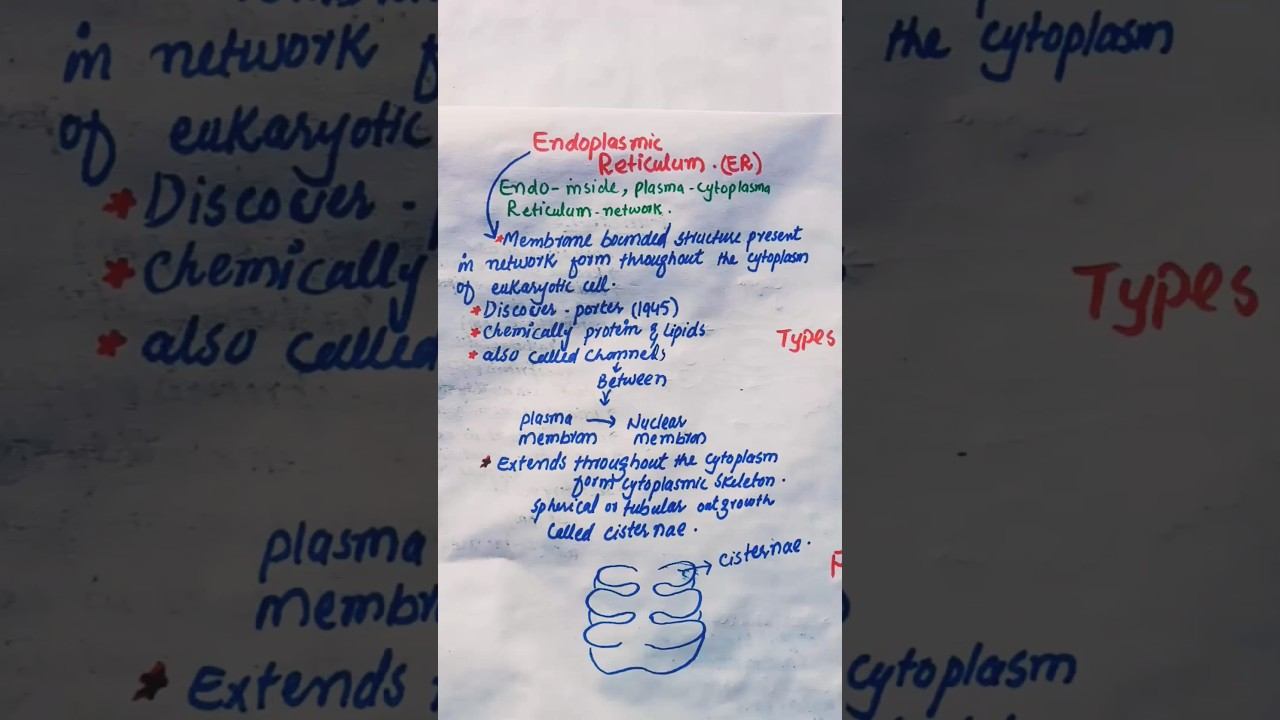 Endoplasmic
Reticulum. (ER)
Endo- inside, plasma-cytoplasma
Reticulum-network.
*Membrame bounded structure present
in network form throughout the cytoplasm
of eukaryotic cell.
*Discover - porter (1945)
*Chemically protein & Lipids
*also called channels
Between
plasma → Nuclear
membran membran
*Extends throughout the cytoplasm
form cytoplasmic skeleton.
spherical or tubular outgrowth
called cisternae.
cisternae.
Types
in network
of eukaryotic
*Discover -
*Chemically
*also called
plasma
*Extends
the cytoplasm
Types
cytoplasm